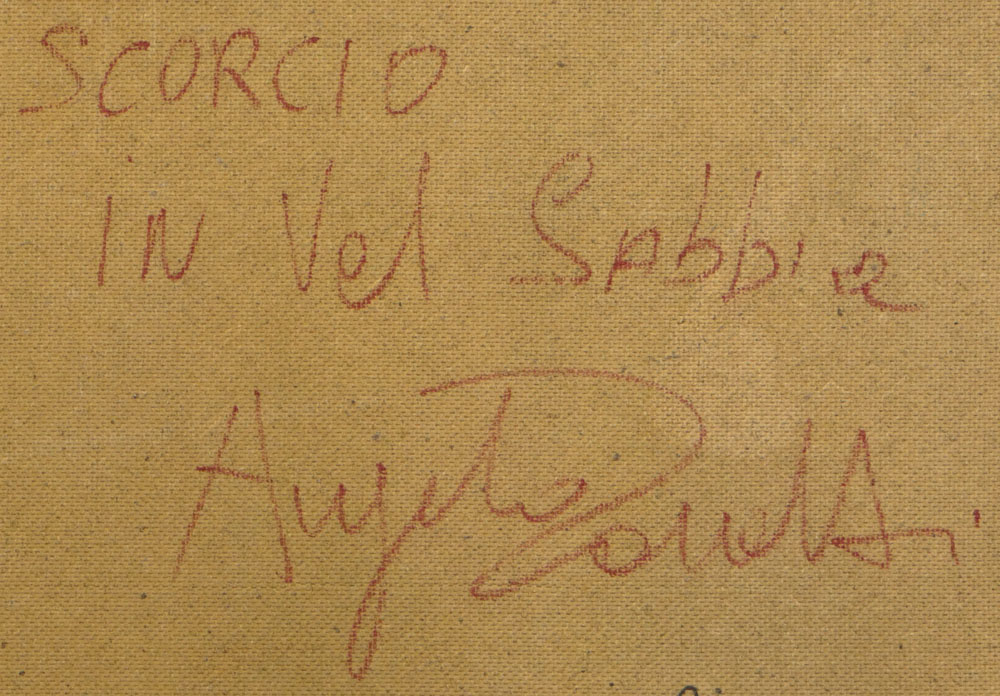 SCORCIO
IN Val Sabbia
Angelo